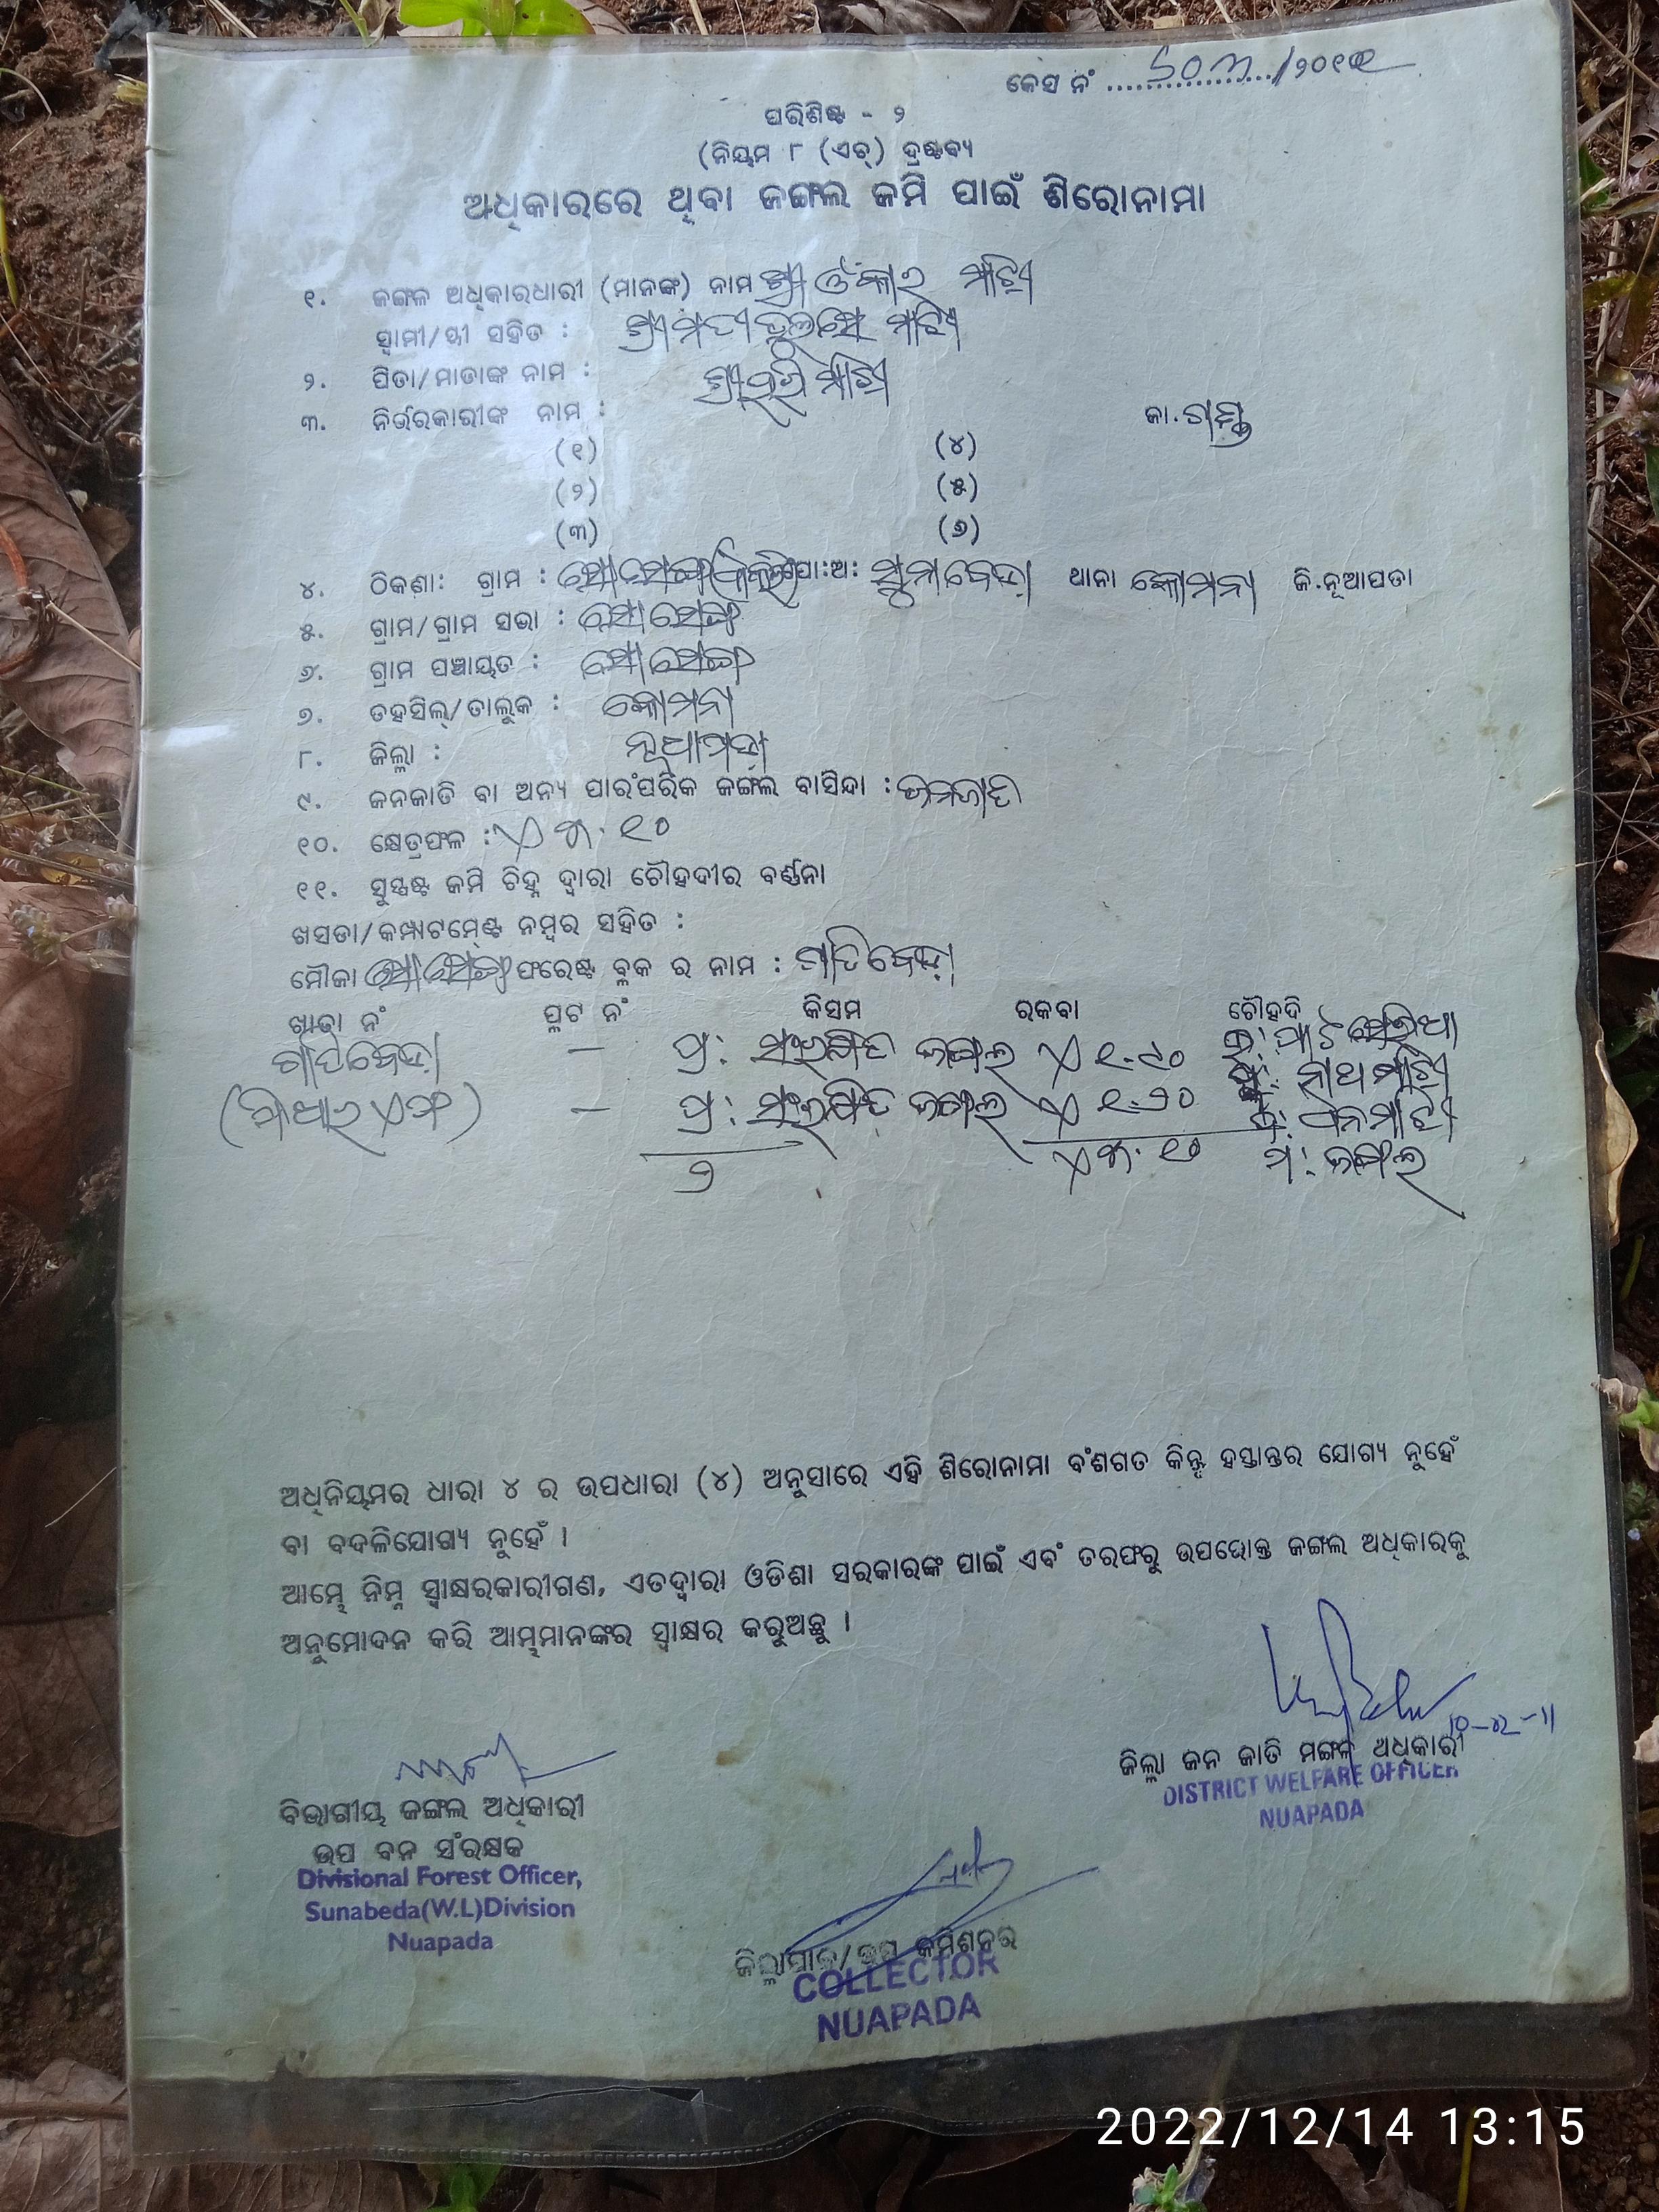 କେସ ନଂ ................./୨୦୧୧
ପରିଶିଷ୍ଟ - ୨
(ନିୟମ ୮ (ଏଚ୍) ଦ୍ରଷ୍ଟବ୍ୟ
ଅଧିକାରରେ ଥିବା ଜଙ୍ଗଲ ଜମି ପାଇଁ ଶିରୋନାମା
୧. ଜଙ୍ଗଳ ଅଧିକାରଧାରୀ (ମାନଙ୍କ) ନାମ ଶ୍ରୀ ଓଁକାର ମାଝୀ
ସ୍ୱାମୀ/ସ୍ତ୍ରୀ ସହିତ : ଶ୍ରୀମତୀ ମାଝୀ
୨. ପିତା/ମାତାଙ୍କ ନାମ : ଶ୍ରୀ ମାଝୀ
୩. ନିର୍ଭରକାରୀଙ୍କ ନାମ : ଜା. ଗଣ୍ଡ
(୧) (୪)
(୨) (୫)
(୩) (୬)
୪. ଠିକଣା: ଗ୍ରାମ : ପୋ:ଅ: ସୁନାବେଡ଼ା ଥାନା କୋମନା ଜି.ନୂଆପଡା
୫. ଗ୍ରାମ/ଗ୍ରାମ ସଭା : ସୋସେଙ୍ଗ
୬. ଗ୍ରାମ ପଞ୍ଚାୟତ : ସୋସେଙ୍ଗ
୭. ତହସିଲ୍/ତାଲୁକ : କୋମନା
୮. ଜିଲ୍ଲା : ନୂଆପଡ଼ା
୯. ଜନଜାତି ବା ଅନ୍ୟ ପାରଂପରିକ ଜଙ୍ଗଲ ବାସିନ୍ଦା : ଜନଜାତି
୧୦. କ୍ଷେତ୍ରଫଳ : ଏ ୩.୧୦
୧୧. ସୁସ୍ପଷ୍ଟ ଜମି ଚିହ୍ନ ଦ୍ୱାରା ଚୌହଦୀର ବର୍ଣ୍ଣନା
ଖସଡା/କମ୍ପାଟମେଣ୍ଟ ନମ୍ବର ସହିତ :
ମୌଜା ସୋସେଙ୍ଗ ଫରେଷ୍ଟ ବ୍ଲକ ର ନାମ : ଗାତିବେଡ଼ା
ଖାତା ନଂ ପ୍ଳଟ ନଂ କିସମ ରକବା ଚୌହଦି
ଗାତିବେଡ଼ା – ପ୍ର: ସଂରକ୍ଷିତ ଜଙ୍ଗଲ ଏ ୧.୯୦
(ପିଆରଏଫ) – ପ୍ର: ସଂରକ୍ଷିତ ଜଙ୍ଗଲ ଏ ୧.୨୦
୨ ଏ ୩.୧୦ ପ: ଜଙ୍ଗଲ
ଅଧିନିୟମର ଧାରା ୪ ର ଉପଧାରା (୪) ଅନୁସାରେ ଏହି ଶିରୋନାମା ବଂଶଗତ କିନ୍ତୁ ହସ୍ତାନ୍ତର ଯୋଗ୍ୟ ନୁହେଁ
ବା ବଦଳିଯୋଗ୍ୟ ନୁହେଁ ।
ଆମ୍ଭେ ନିମ୍ନ ସ୍ୱାକ୍ଷରକାରୀଗଣ, ଏତଦ୍ୱାରା ଓଡିଶା ସରକାରଙ୍କ ପାଇଁ ଏବଂ ତରଫରୁ ଉପରୋକ୍ତ ଜଙ୍ଗଲ ଅଧିକାରକୁ
ଅନୁମୋଦନ କରି ଆମ୍ଭମାନଙ୍କର ସ୍ୱାକ୍ଷର କରୁଅଛୁ ।
ଜିଲ୍ଲା ଜନ ଜାତି ମଙ୍ଗଳ ଅଧିକାରୀ
DISTRICT WELFARE OFFICER
NUAPADA
ବିଭାଗୀୟ ଜଙ୍ଗଲ ଅଧିକାରୀ
ଉପ ବନ ସଂରକ୍ଷକ
Divisional Forest Officer,
Sunabeda(W.L)Division
Nuapada
ଜିଲ୍ଲାପାଳ/ଉପ କମିଶନର
COLLECTOR
NUAPADA
2022/12/14 13:15